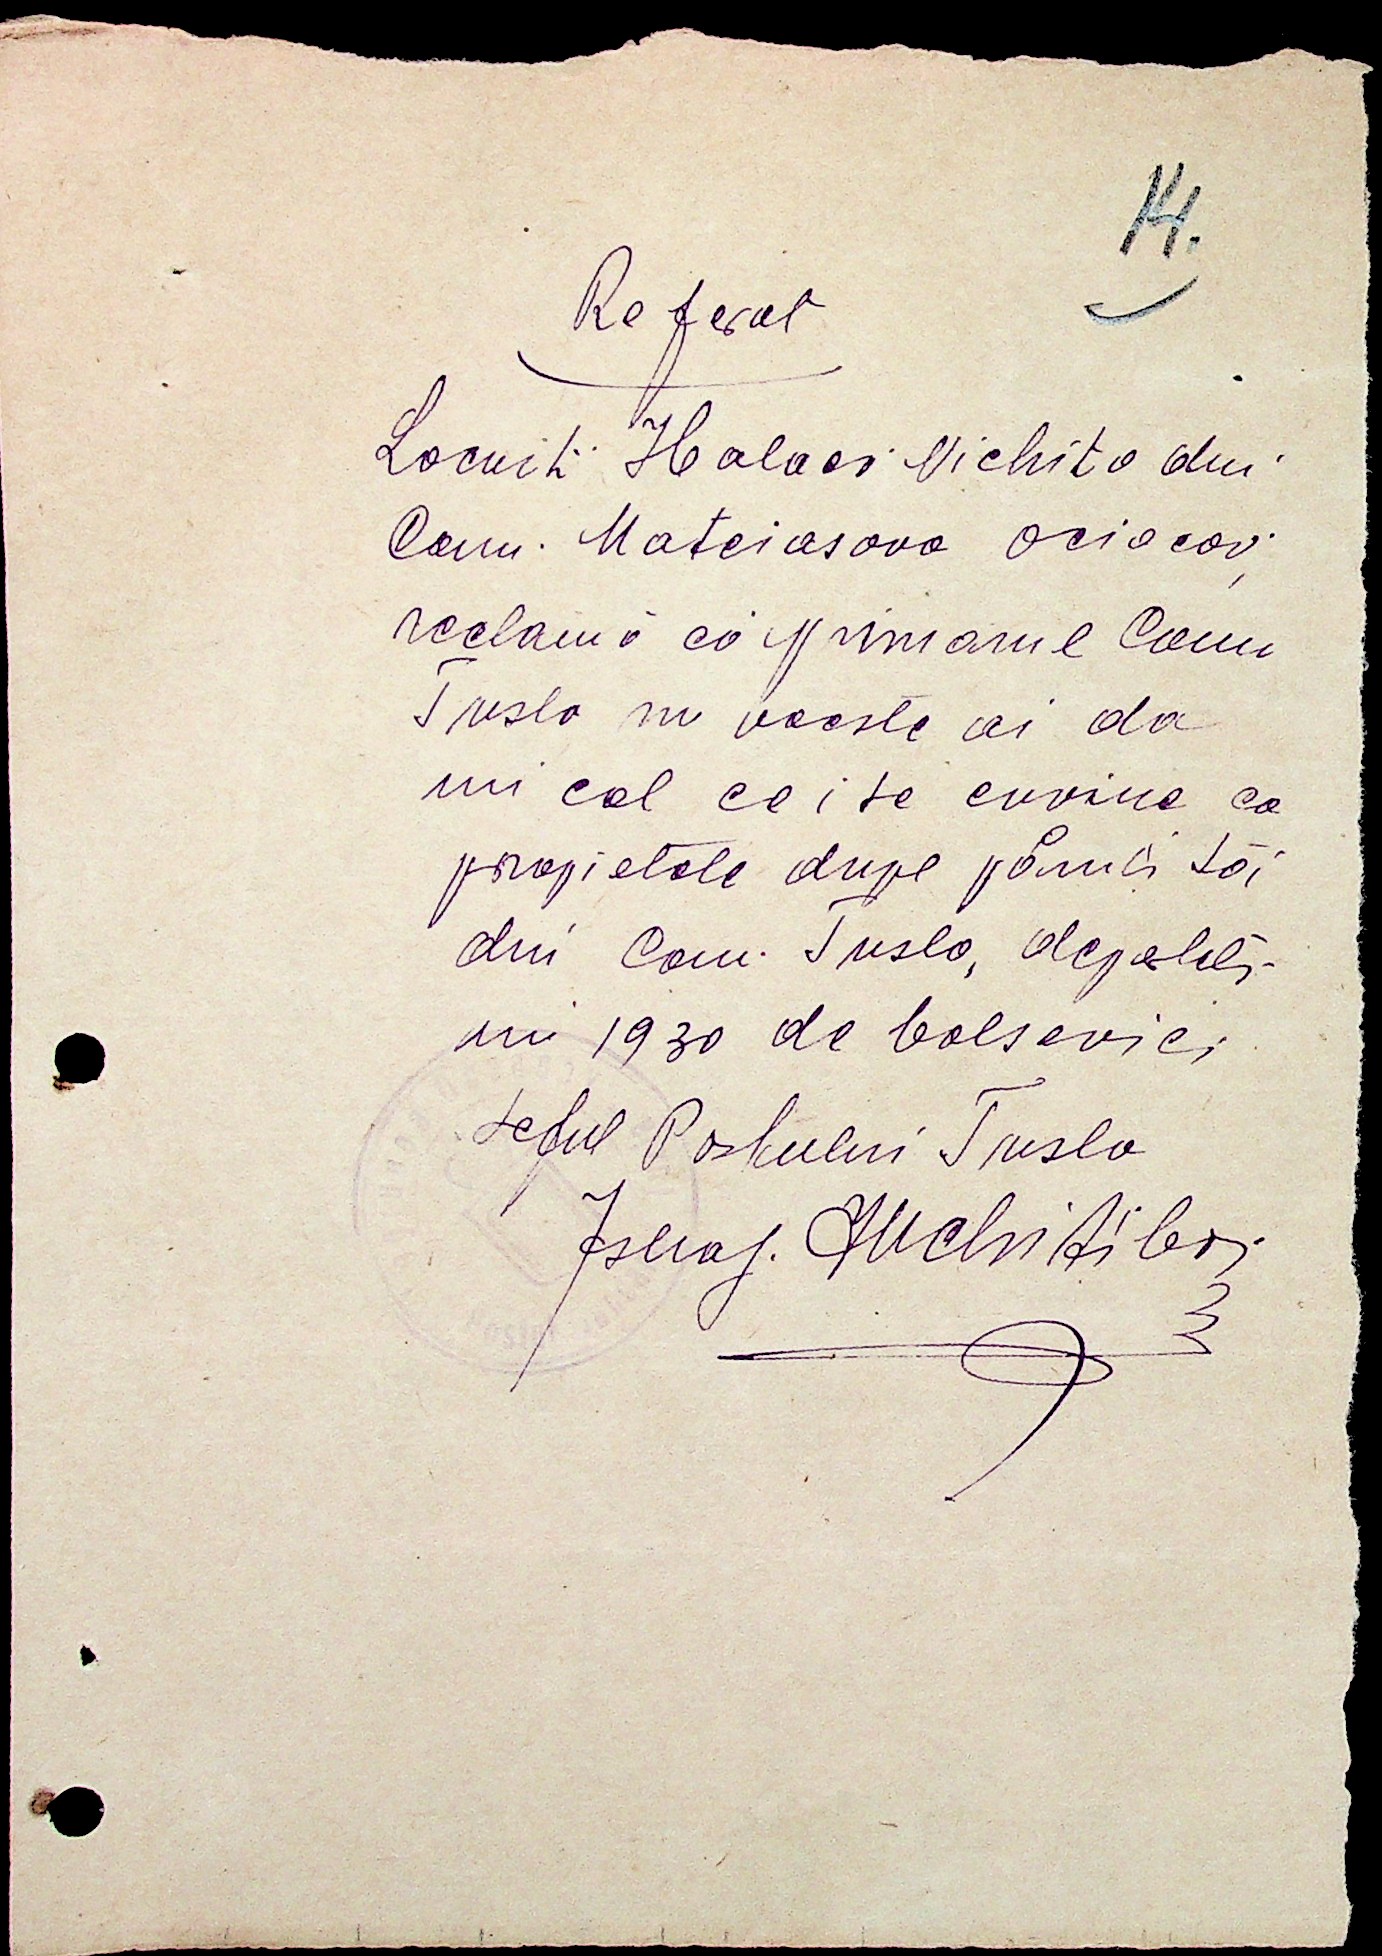 14.
Referat
Locuit. Halaci Nichita din
Com. Mateiasova Ociacov,
reclamă că primarul Com
Tuslo nu voeste ai da
un cal ce i se cuvine ca
propietate dupe părinți săi
din Com. Tuslo,
in 1930 de bolsevici
seful Postului Tuslo